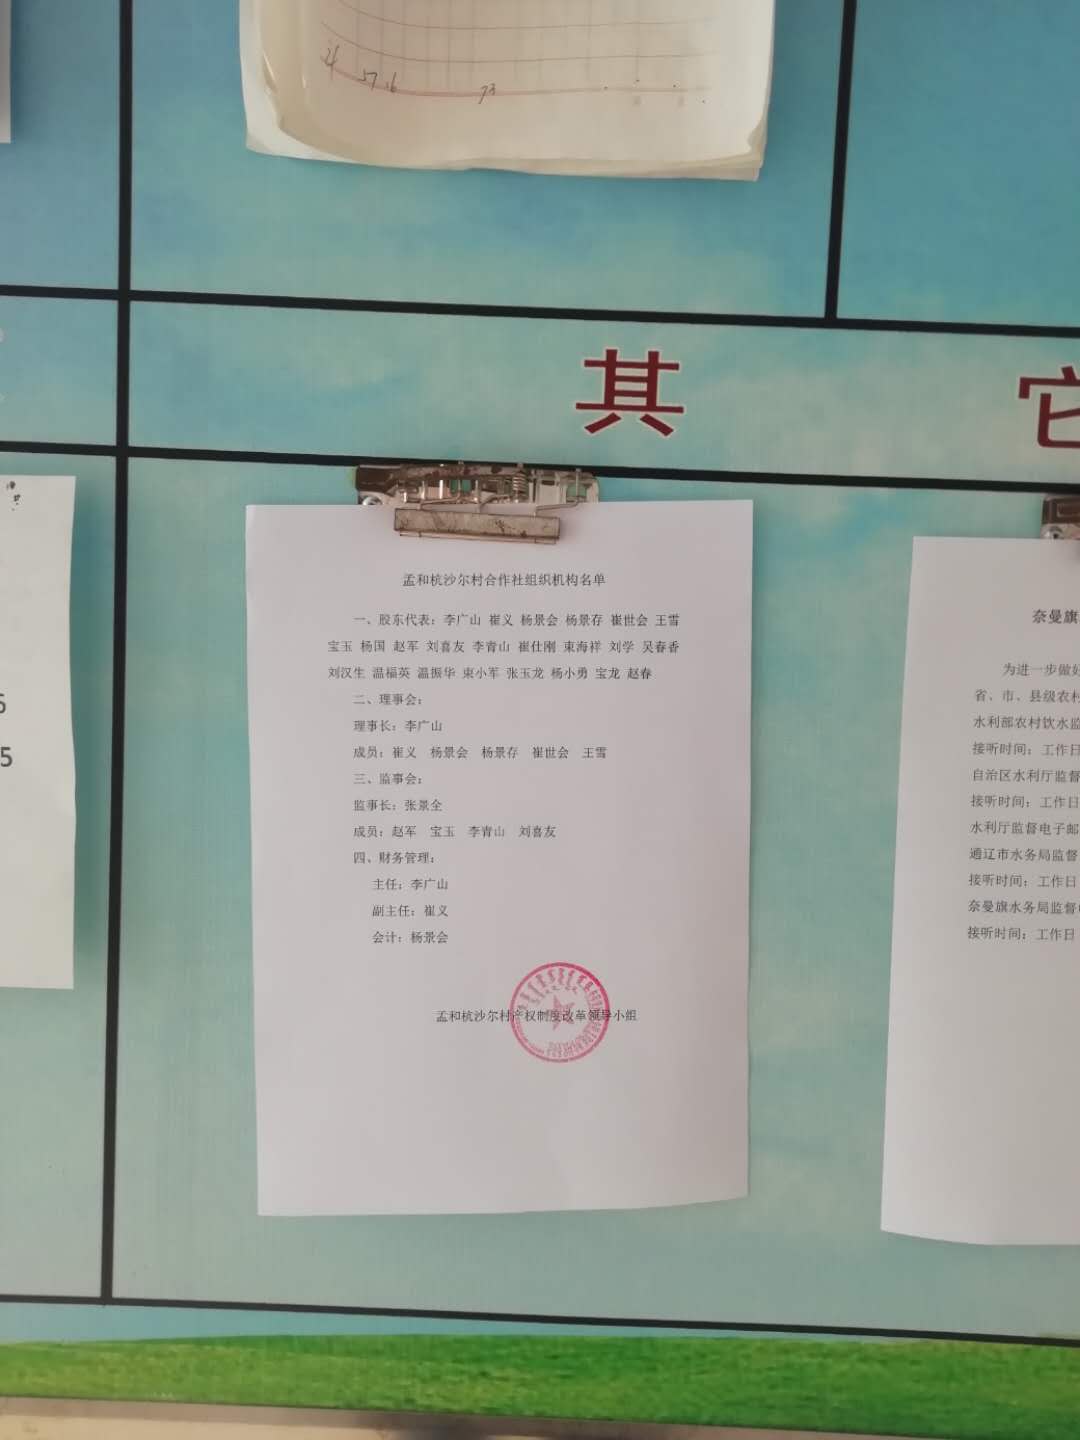 73
其它
孟和杭沙尔村合作社组织机构名单
一、股东代表：李广山 崔义 杨景会 杨景存 崔世会 王雪
宝玉 杨国 赵军 刘喜友 李青山 崔仕刚 束海祥 刘学 吴春香
刘汉生 温福英 温振华 束小军 张玉龙 杨小勇 宝龙 赵春
二、理事会：
理事长：李广山
成员：崔义 杨景会 杨景存 崔世会 王雪
三、监事会：
监事长：张景全
成员：赵军 宝玉 李青山 刘喜友
四、财务管理：
主任：李广山
副主任：崔义
会计：杨景会
孟和杭沙尔村产权制度改革领导小组
奈曼旗
为进一步做好
省、市、县级农村
水利部农村饮水监
接听时间：工作日
自治区水利厅监督
接听时间：工作日
水利厅监督电子邮
通辽市水务局监督
接听时间：工作日
奈曼旗水务局监督
接听时间：工作日
6
5